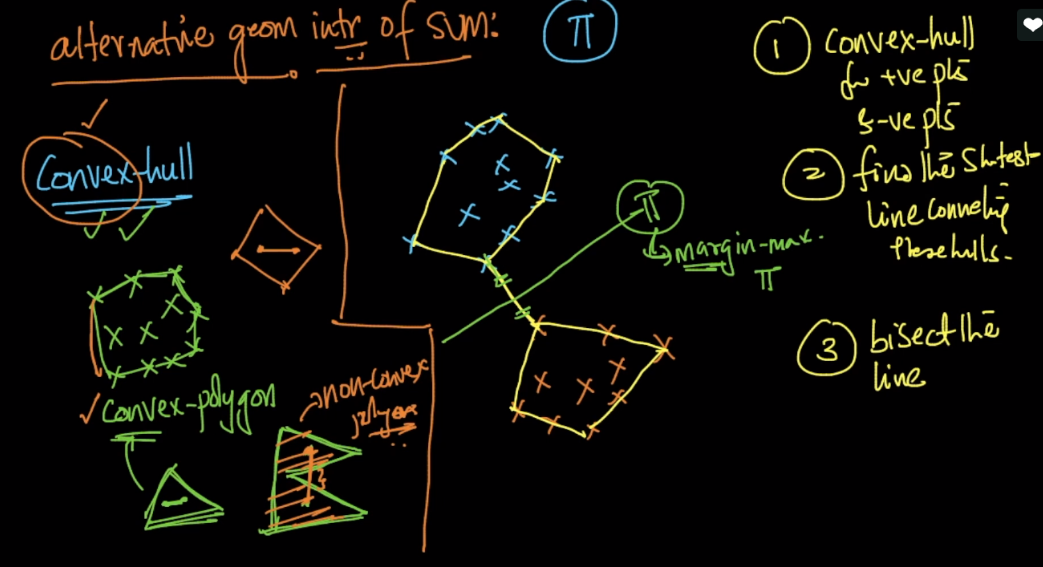 alternative geom intr of sum:
π
Convex-hull
convex-polygon
non-convex
polygon
π
margin-max.
π
1 convex-hull
for +ve pts
& -ve pts
2 find the Shortest
line connecting
these hulls.
3 bisect the
line